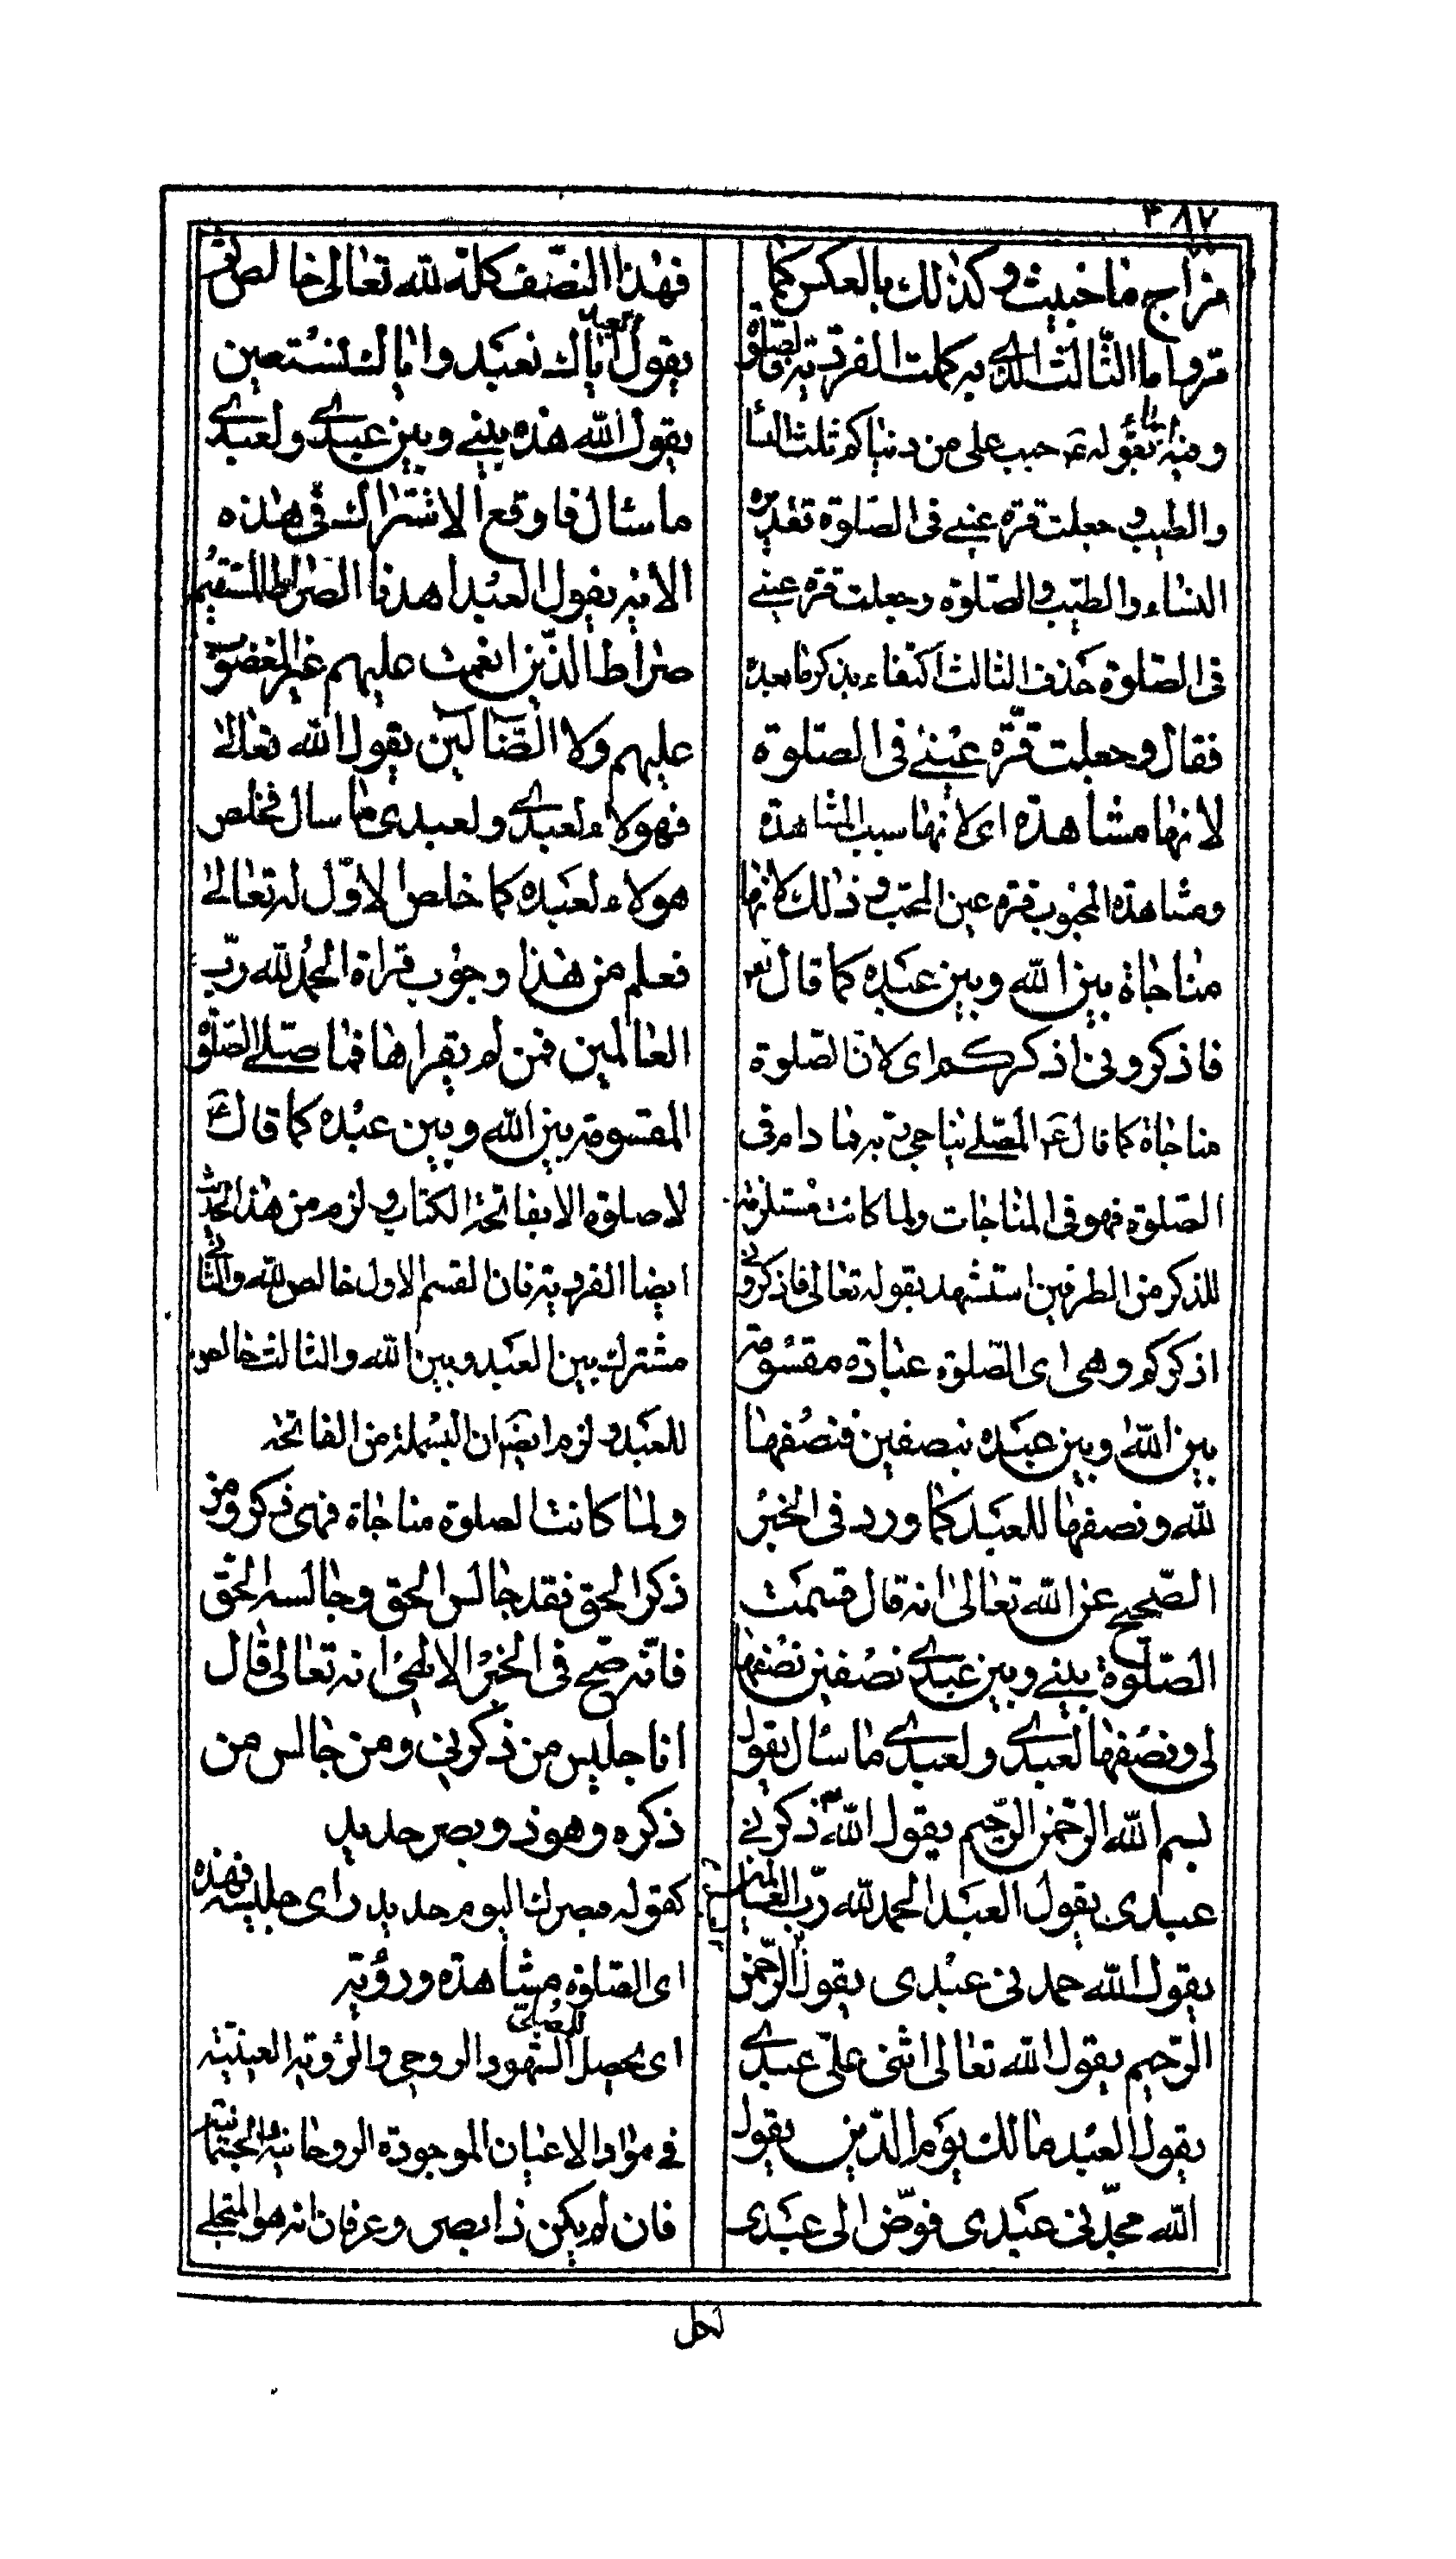 ٣٨٧
مزاج ما خبيث وكذلك بالعكس كما
مر واما الثالث الذي به كملت الفردية فالصلوة
ومنبأ بقوله عم حبب علي من دنياكم ثلث النساء
والطيب وجعلت قرة عيني فى الصلوة تقديره
النساء والطيب والصلوة وجعلت قرة عيني
فى الصلوة حذف الثالث اكتفاء بذكر ما بعده
فقال وجعلت قرة عيني فى الصلوة
لانها مشاهدة اى لانها سبب المشاهدة
ومشاهدة المحبوب قرة عين المحب وذلك لانها
مناجاة بين الله وبين عبده كما قال تعم
فاذكروني اذكركم اى لان الصلوة
مناجاة كما قال عم المصلي يناجي ربه فما دام فى
الصلوة فهو فى المناجات ولما كانت مستلزمة
للذكر من الطرفين استشهد بقوله تعالى فاذكروني
اذكركم وهى اى الصلوة عبادة مقسومة
بين الله وبين عبده بنصفين فنصفها
لله ونصفها للعبد كما ورد فى الخبر
الصحيح عن الله تعالى انه قال قسمت
الصلوة بيني وبين عبدي نصفين نصفها
لى ونصفها لعبدي ولعبدي ما سئال يقول
بسم الله الرحمن الرحيم يقول الله ذكرني
عبدى يقول العبد الحمد لله رب العالمين
يقول الله حمدنى عبدى يقول الرحمن
الرحيم يقول الله تعالى اثنى علي عبدي
يقول العبد مالك يوم الدين يقول
الله مجدنى عبدى فوض الى عبدى
فهذا النصف كله لله تعالى خالص ثم
يقول العبد اياك نعبد واياك نستعين
يقول الله هذه بيني وبين عبدي ولعبدي
ما سئال فاوقع الاشتراك فى هذه
الاية يقول العبد اهدنا الصراط المستقيم
صراط الذين انعمت عليهم غير المغضوب
عليهم ولا الضالين يقول الله تعالى
فهولاء لعبدي ولعبدى ما سال فخلص
هولاء لعبده كما خلص الاول له تعالى
فعلم من هذا وجوب قراءة الحمد لله رب
العالمين فمن لم يقراها فما صلى الصلوة
المقسومة بين الله وبين عبده كما قال عم
لا صلوة الا بفاتحة الكتاب ولزم من هذا الحديث
ايضا الفردية فان القسم الاول خالص لله والثاني
مشترك بين العبد وبين الله والثالث خالص
للعبد ولزم ايضا ان البسملة من الفاتحة
ولما كانت الصلوة مناجاة فهى ذكر ومن
ذكر الحق فقد جالس الحق وجالسه الحق
فانه صح فى الخبر الالهى انه تعالى قال
انا جليس من ذكرني ومن جالس من
ذكره وهو ذو بصر حديد
كقوله فبصرك اليوم حديد راى جليسه فهذه
اى الصلوة مشاهدة ورؤية
اى يحصل للمصلي الشهود الروحي والرؤية العينية
في مواد الاعيان الموجودة الروحانية والجسمانية
فان لم يكن ذا بصر وعرفان انه هو المتجلي